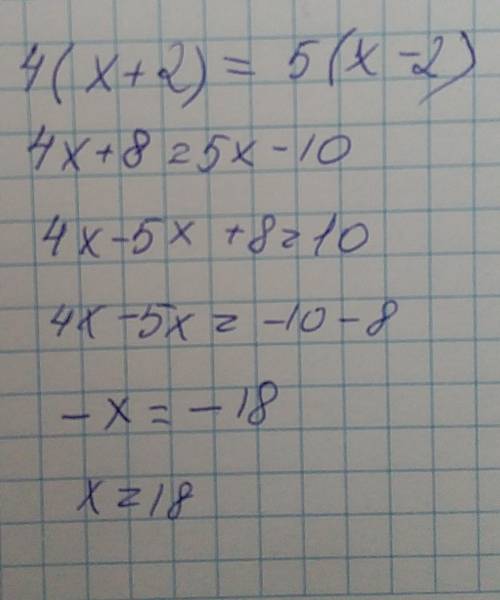 4(x+2) = 5(x-2)
4x+8=5x-10
4x-5x+8=10
4x-5x=-10-8
-x=-18
x=18